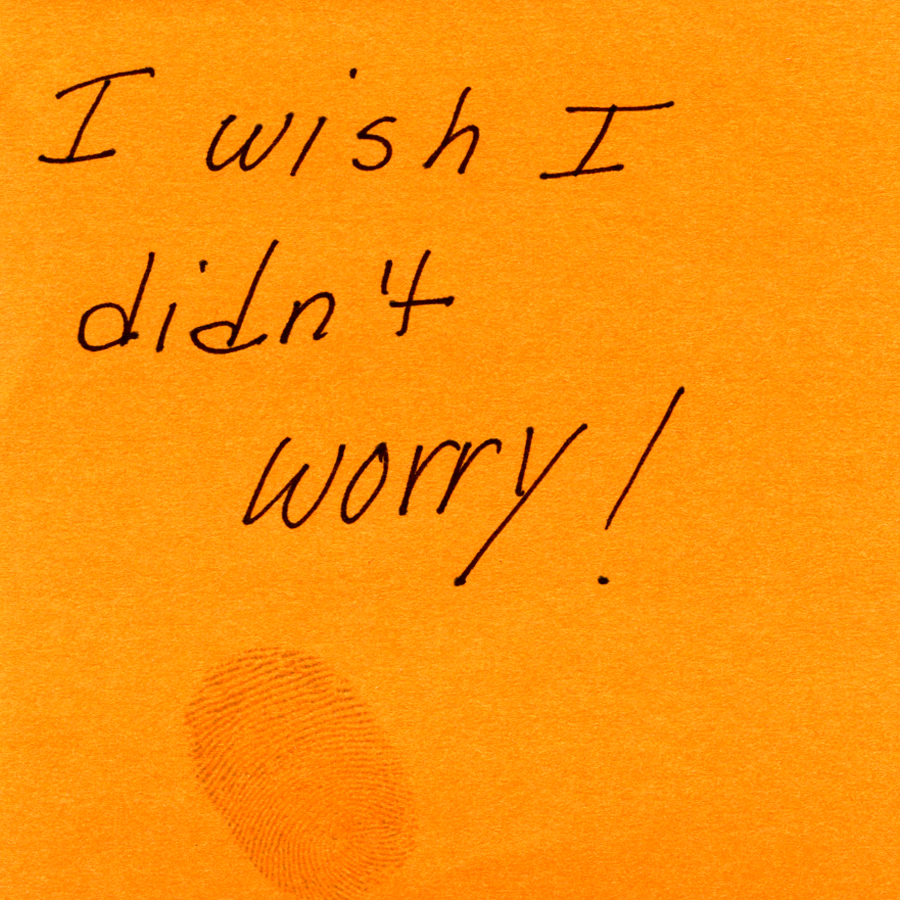 I wish I
didn't
worry!